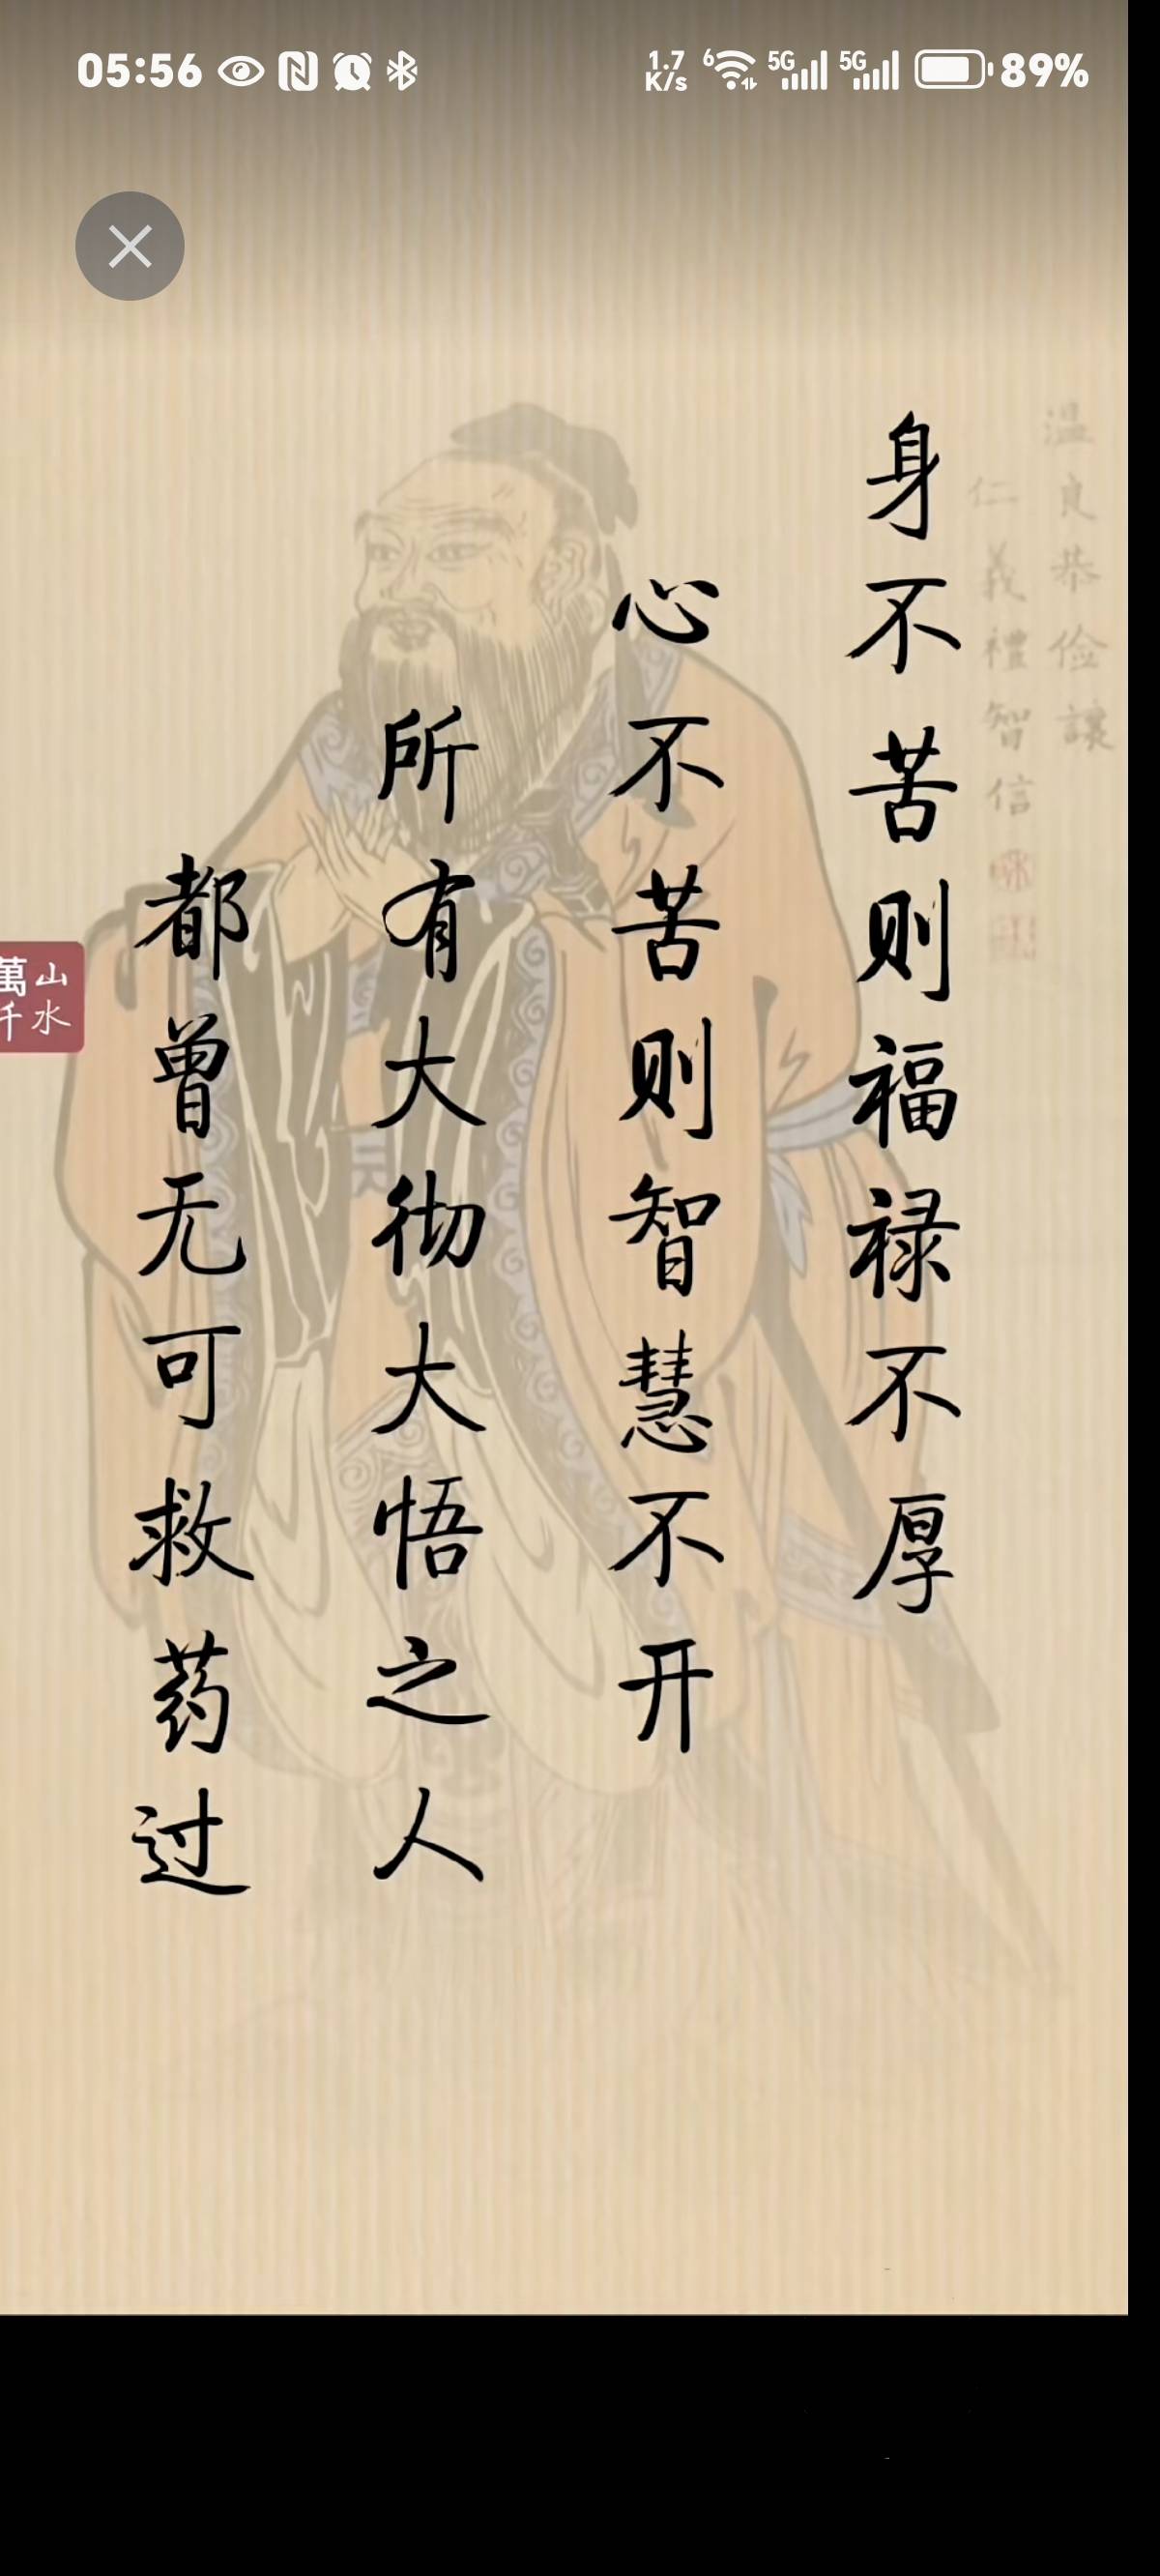 05:56
1.7 K/s 6 5G 5G 89%
温良恭俭讓
仁義禮智信
身不苦则福禄不厚
心不苦则智慧不开
所有大彻大悟之人
都曾无可救药过
山水
萬千